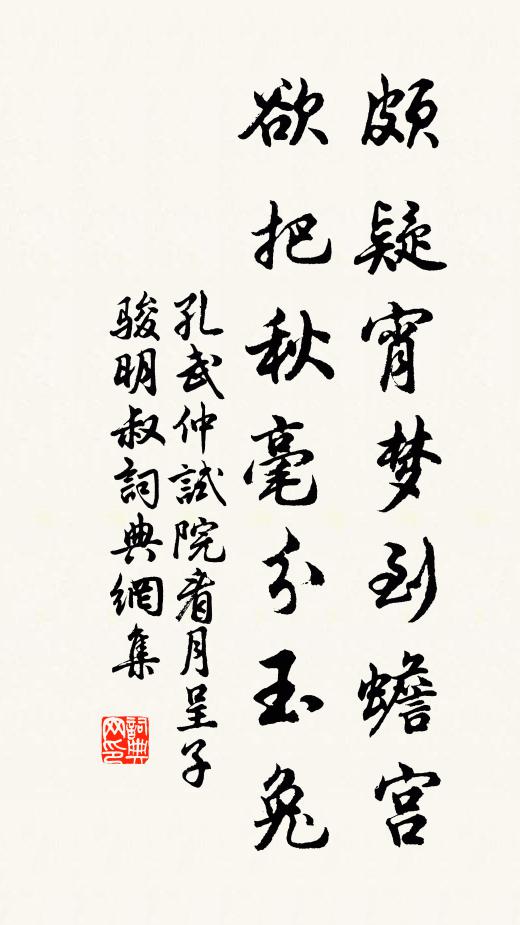 颇疑宵梦到蟾宫
欲把秋毫分玉兔
孔武仲試院看月呈子
骏明叔詞典網集
詞典
网印